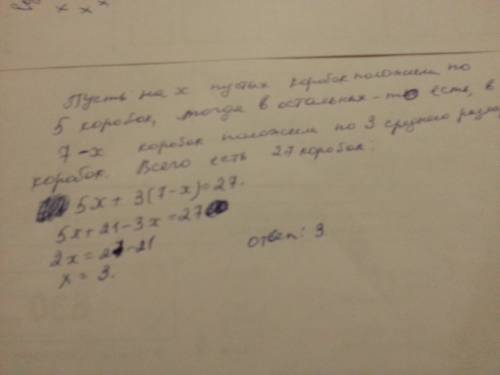 Пусть на x пустых коробок положили по
5 коробок, тогда в остальных - то есть, в
7-x коробок положили по 3 среднего разм
коробок. Всего есть 27 коробок:
5x + 3(7-x)=27.
5x+21-3x=27
2x=27-21
x = 3.
ответ: 3